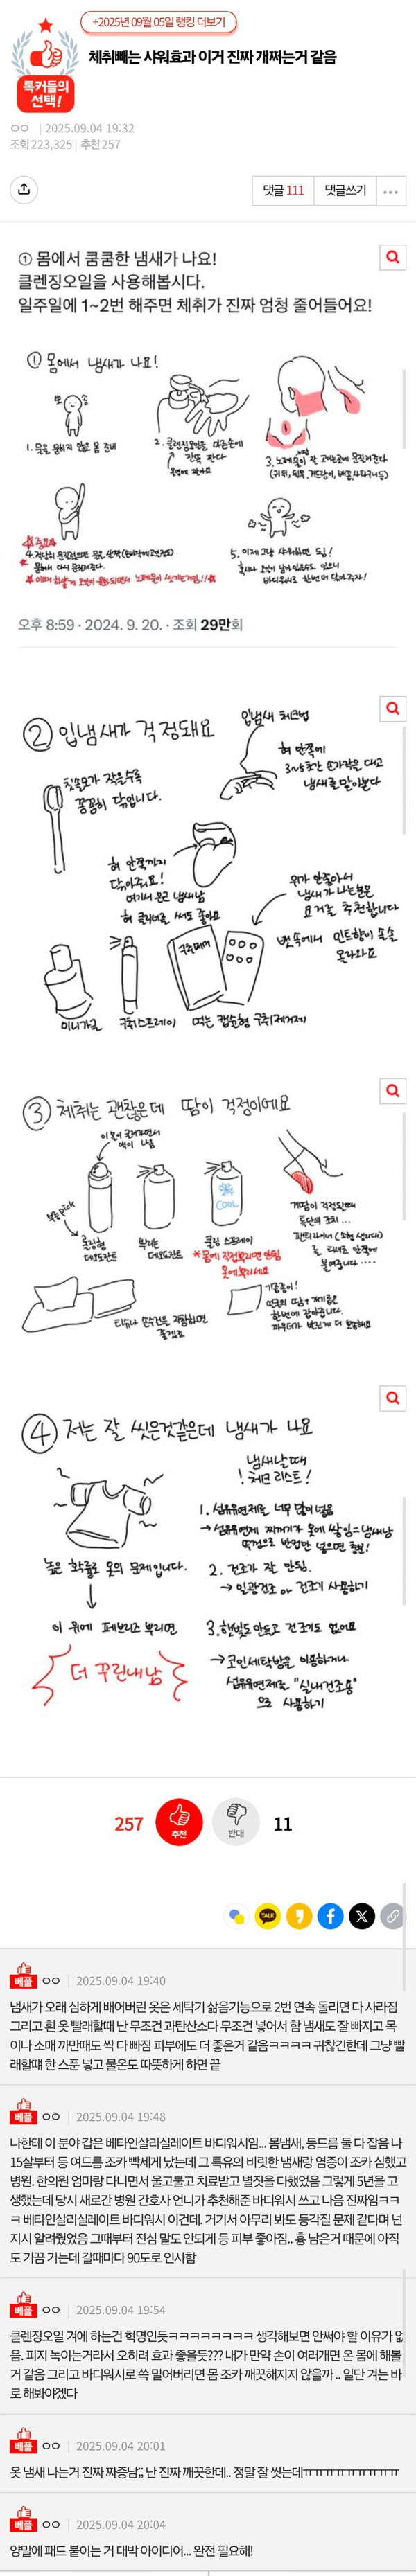 +2025년 09월 05일 랭킹 더보기
체취빼는 샤워효과 이거 진짜 개쩌는거 같음
톡커들의
선택!
ㅇㅇ | 2025.09.04 19:32
조회 223,325 | 추천 257
댓글 111 댓글쓰기 ...
① 몸에서 쿰쿰한 냄새가 나요!
클렌징오일을 사용해봅시다.
일주일에 1~2번 해주면 체취가 진짜 엄청 줄어들어요!
① 몸에서 냄새가 나요!
뽀송
1. 물을 묻히지 않은 몸 준비
2. 클렌징오일을 마른손에
듬뿍 짠다
3. 노폐물이 잘 쌓이는곳에 문질러준다
문해서 다시 문질러준다.
5. 이제 그냥 샤워하면 됨!
혹시나 오일이 남아있을수도 있으니
바디워시로 한번더 닦아주자!
오후 8:59 · 2024. 9. 20. · 조회 29만회
② 입냄새가 걱정돼요
입냄새 체크법
혀 안쪽에
3~5초간 손가락을 대고
냄새를 맡아본다
칫솔모가 작을수록
꼼꼼히 닦입니다.
혀 안쪽까지
닦아주기!
여기서 모든 냄새남
혀 클리너를 써도 좋아요
위가 안좋아서
냄새가 나는분은
요거를 추천합니다
뱃속에서 민트향이 솔솔
올라와요
구취제거
미니가글 구취스프레이 먹는 캡슐형 구취제거제
③ 체취는 괜찮은데 땀이 걱정이에요
이 볼이 굴러가면서
액이 나옴
롤링형
데오드란트
뿌리는
데오드란트
COOL
쿨링 스프레이
*몸에 직접뿌리면 안됨
옷에뿌리세요
겨땀이 걱정될때
특단의 조치...
팬티라이너 (소형 생리대)
를 티셔츠 안쪽에
붙여줍니다....
티슈나 손수건을 지참하면
좋겠죠
기름종이!
한번에 잡아줍니다.
파우더가 발린게 더 뽀송해요
④ 저는 잘 씻은것같은데 냄새가 나요
냄새날때
! 체크리스트!
1. 섬유유연제를 너무 많이 넣음
→ 섬유유연제 찌꺼기가 옷에 쌓임=냄새남
뚜껑으로 반컵만 넣으면 충분!
2. 건조가 잘 안됨.
→ 일광건조 or 건조기 사용하기
높은 확률로 옷의 문제입니다.
이 위에 페브리즈 뿌리면
더 꾸린내남
3. 햇빛도 안들고 건조기도 없어요
→ 코인세탁방을 이용하거나
섬유유연제를 "실내건조용"
으로 사용하기
257 추천 반대 11
TALK
베플 ㅇㅇ | 2025.09.04 19:40
냄새가 오래 심하게 배어버린 옷은 세탁기 삶음기능으로 2번 연속 돌리면 다 사라짐
그리고 흰 옷 빨래할때 난 무조건 과탄산소다 무조건 넣어서 함 냄새도 잘 빠지고 목
이나 소매 까만때도 싹 다 빠짐 피부에도 더 좋은거 같음ㅋㅋㅋㅋ 귀찮긴한데 그냥 빨
래할떄 한 스푼 넣고 물온도 따뜻하게 하면 끝
베플 ㅇㅇ | 2025.09.04 19:48
나한테 이 분야 갑은 베타인살리실레이트 바디워시임... 몸냄새, 등드름 둘 다 잡음 나
15살부터 등 여드름 조카 빡세게 났는데 그 특유의 비릿한 냄새랑 염증이 조카 심했고
병원. 한의원 엄마랑 다니면서 울고불고 치료받고 별짓을 다했었음 그렇게 5년을 고
생했는데 당시 새로간 병원 간호사 언니가 추천해준 바디워시 쓰고 나음 진짜임ㅋㅋ
ㅋ 베타인살리실레이트 바디워시 이건데. 거기서 아무리 봐도 등각질 문제 같다며 넌
지시 알려줬었음 그때부터 진심 말도 안되게 등 피부 좋아짐.. 흉 남은거 때문에 아직
도 가끔 가는데 갈때마다 90도로 인사함
베플 ㅇㅇ | 2025.09.04 19:54
클렌징오일 겨에 하는건 혁명인듯ㅋㅋㅋㅋㅋㅋㅋㅋ 생각해보면 안써야 할 이유가 없
음. 피지 녹이는거라서 오히려 효과 좋을듯??? 내가 만약 손이 여러개면 온 몸에 해볼
거 같음 그리고 바디워시로 쓱 밀어버리면 몸 조카 깨끗해지지 않을까 .. 일단 겨는 바
로 해봐야겠다
베플 ㅇㅇ | 2025.09.04 20:01
옷 냄새 나는거 진짜 짜증남;; 난 진짜 깨끗한데.. 정말 잘 씻는데ㅠㅠㅠㅠㅠㅠㅠㅠㅠ
베플 ㅇㅇ | 2025.09.04 20:04
양말에 패드 붙이는 거 대박 아이디어... 완전 필요해!